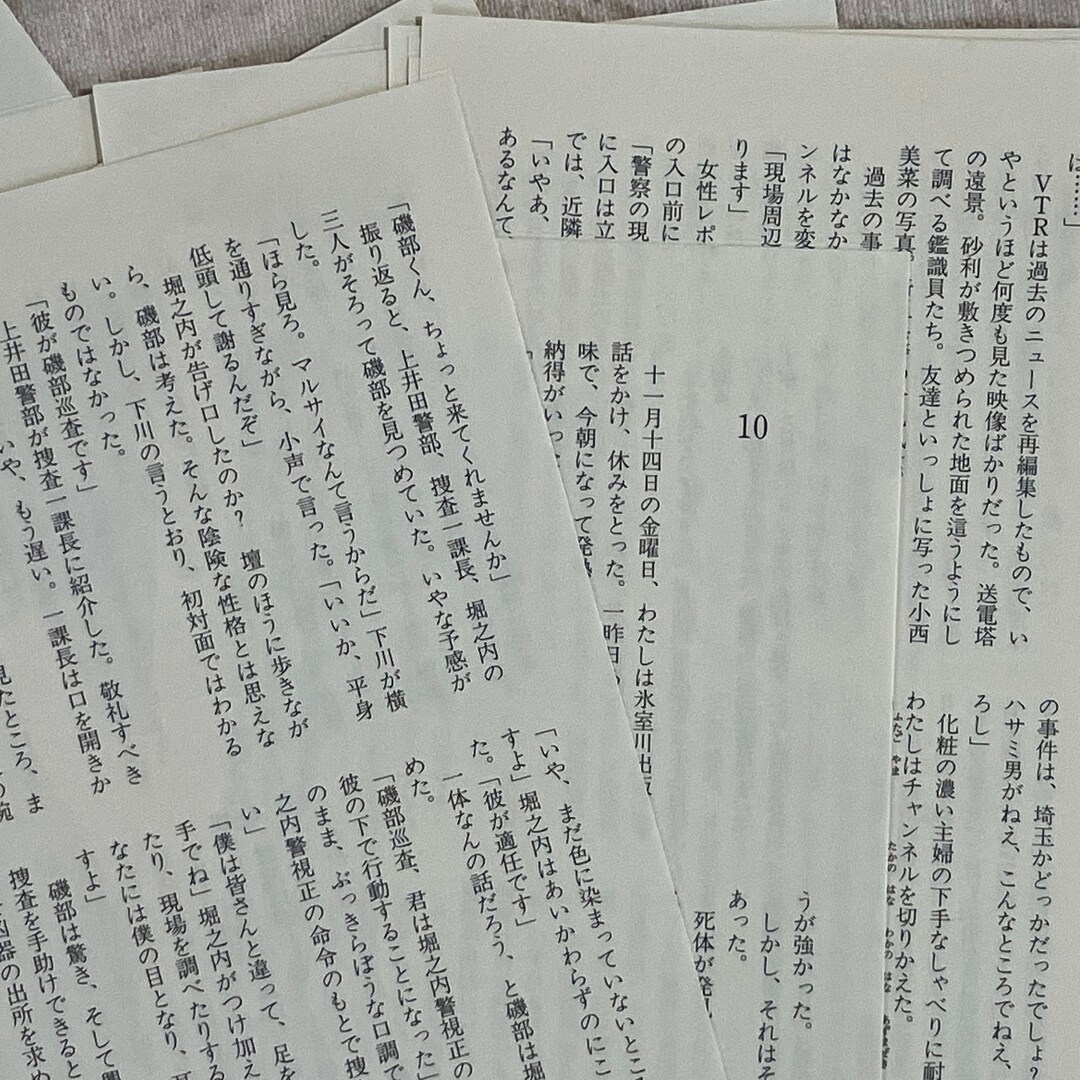 「磯部くん、ちょっと来てくれませんか」
振り返ると、上井田警部、捜査一課長、堀之内の
三人がそろって磯部を見つめていた。いやな予感が
した。
「ほら見ろ。マルサイなんて言うからだ」下川が横
を通りすぎながら、小声で言った。「いいか、平身
低頭して謝るんだぞ」
堀之内が告げ口したのか？　壇のほうに歩きなが
ら、磯部は考えた。そんな陰険な性格とは思えな
い。しかし、下川の言うとおり、初対面ではわかる
ものではなかった。
「彼が磯部巡査です」
上井田警部が捜査一課長に紹介した。敬礼すべき
いや、もう遅い。一課長は口を開きか
見たところ、ま
「いや、まだ色に染まっていないとこ
すよ」堀之内はあいかわらずのにこ
た。「彼が適任です」
一体なんの話だろう、と磯部は堀
めた。
「磯部巡査、君は堀之内警視正の
彼の下で行動することになった」
のまま、ぶっきらぼうな口調で
之内警視正の命令のもとで捜
い」
「僕は皆さんと違って、足を
手でね」堀之内がつけ加え
たり、現場を調べたりする
なたには僕の目となり、
すよ」
磯部は驚き、そして
捜査を手助けできると
凶器の出所を求め
は……」
VTRは過去のニュースを再編集したもので、い
やというほど何度も見た映像ばかりだった。送電塔
の遠景。砂利が敷きつめられた地面を這うようにし
て調べる鑑識員たち。友達といっしょに写った小西
美菜の写真。
過去の事
はなかなか
ンネルを変
「現場周辺
ります」
女性レポ
の入口前に
「警察の現
に入口は立
では、近隣
「いやあ、
あるなんて、
の事件は、埼玉かどっかだったでしょ？
ハサミ男がねえ、こんなところでねえ、
ろし」
化粧の濃い主婦の下手なしゃべりに耐
わたしはチャンネルを切りかえた。
ふたご やま
たかの はな
わかの はな
10
十一月十四日の金曜日、わたしは氷室川出版
話をかけ、休みをとった。一昨日
味で、今朝になって発熱
納得がいった
うが強かった。
しかし、それはそ
あった。
死体が発